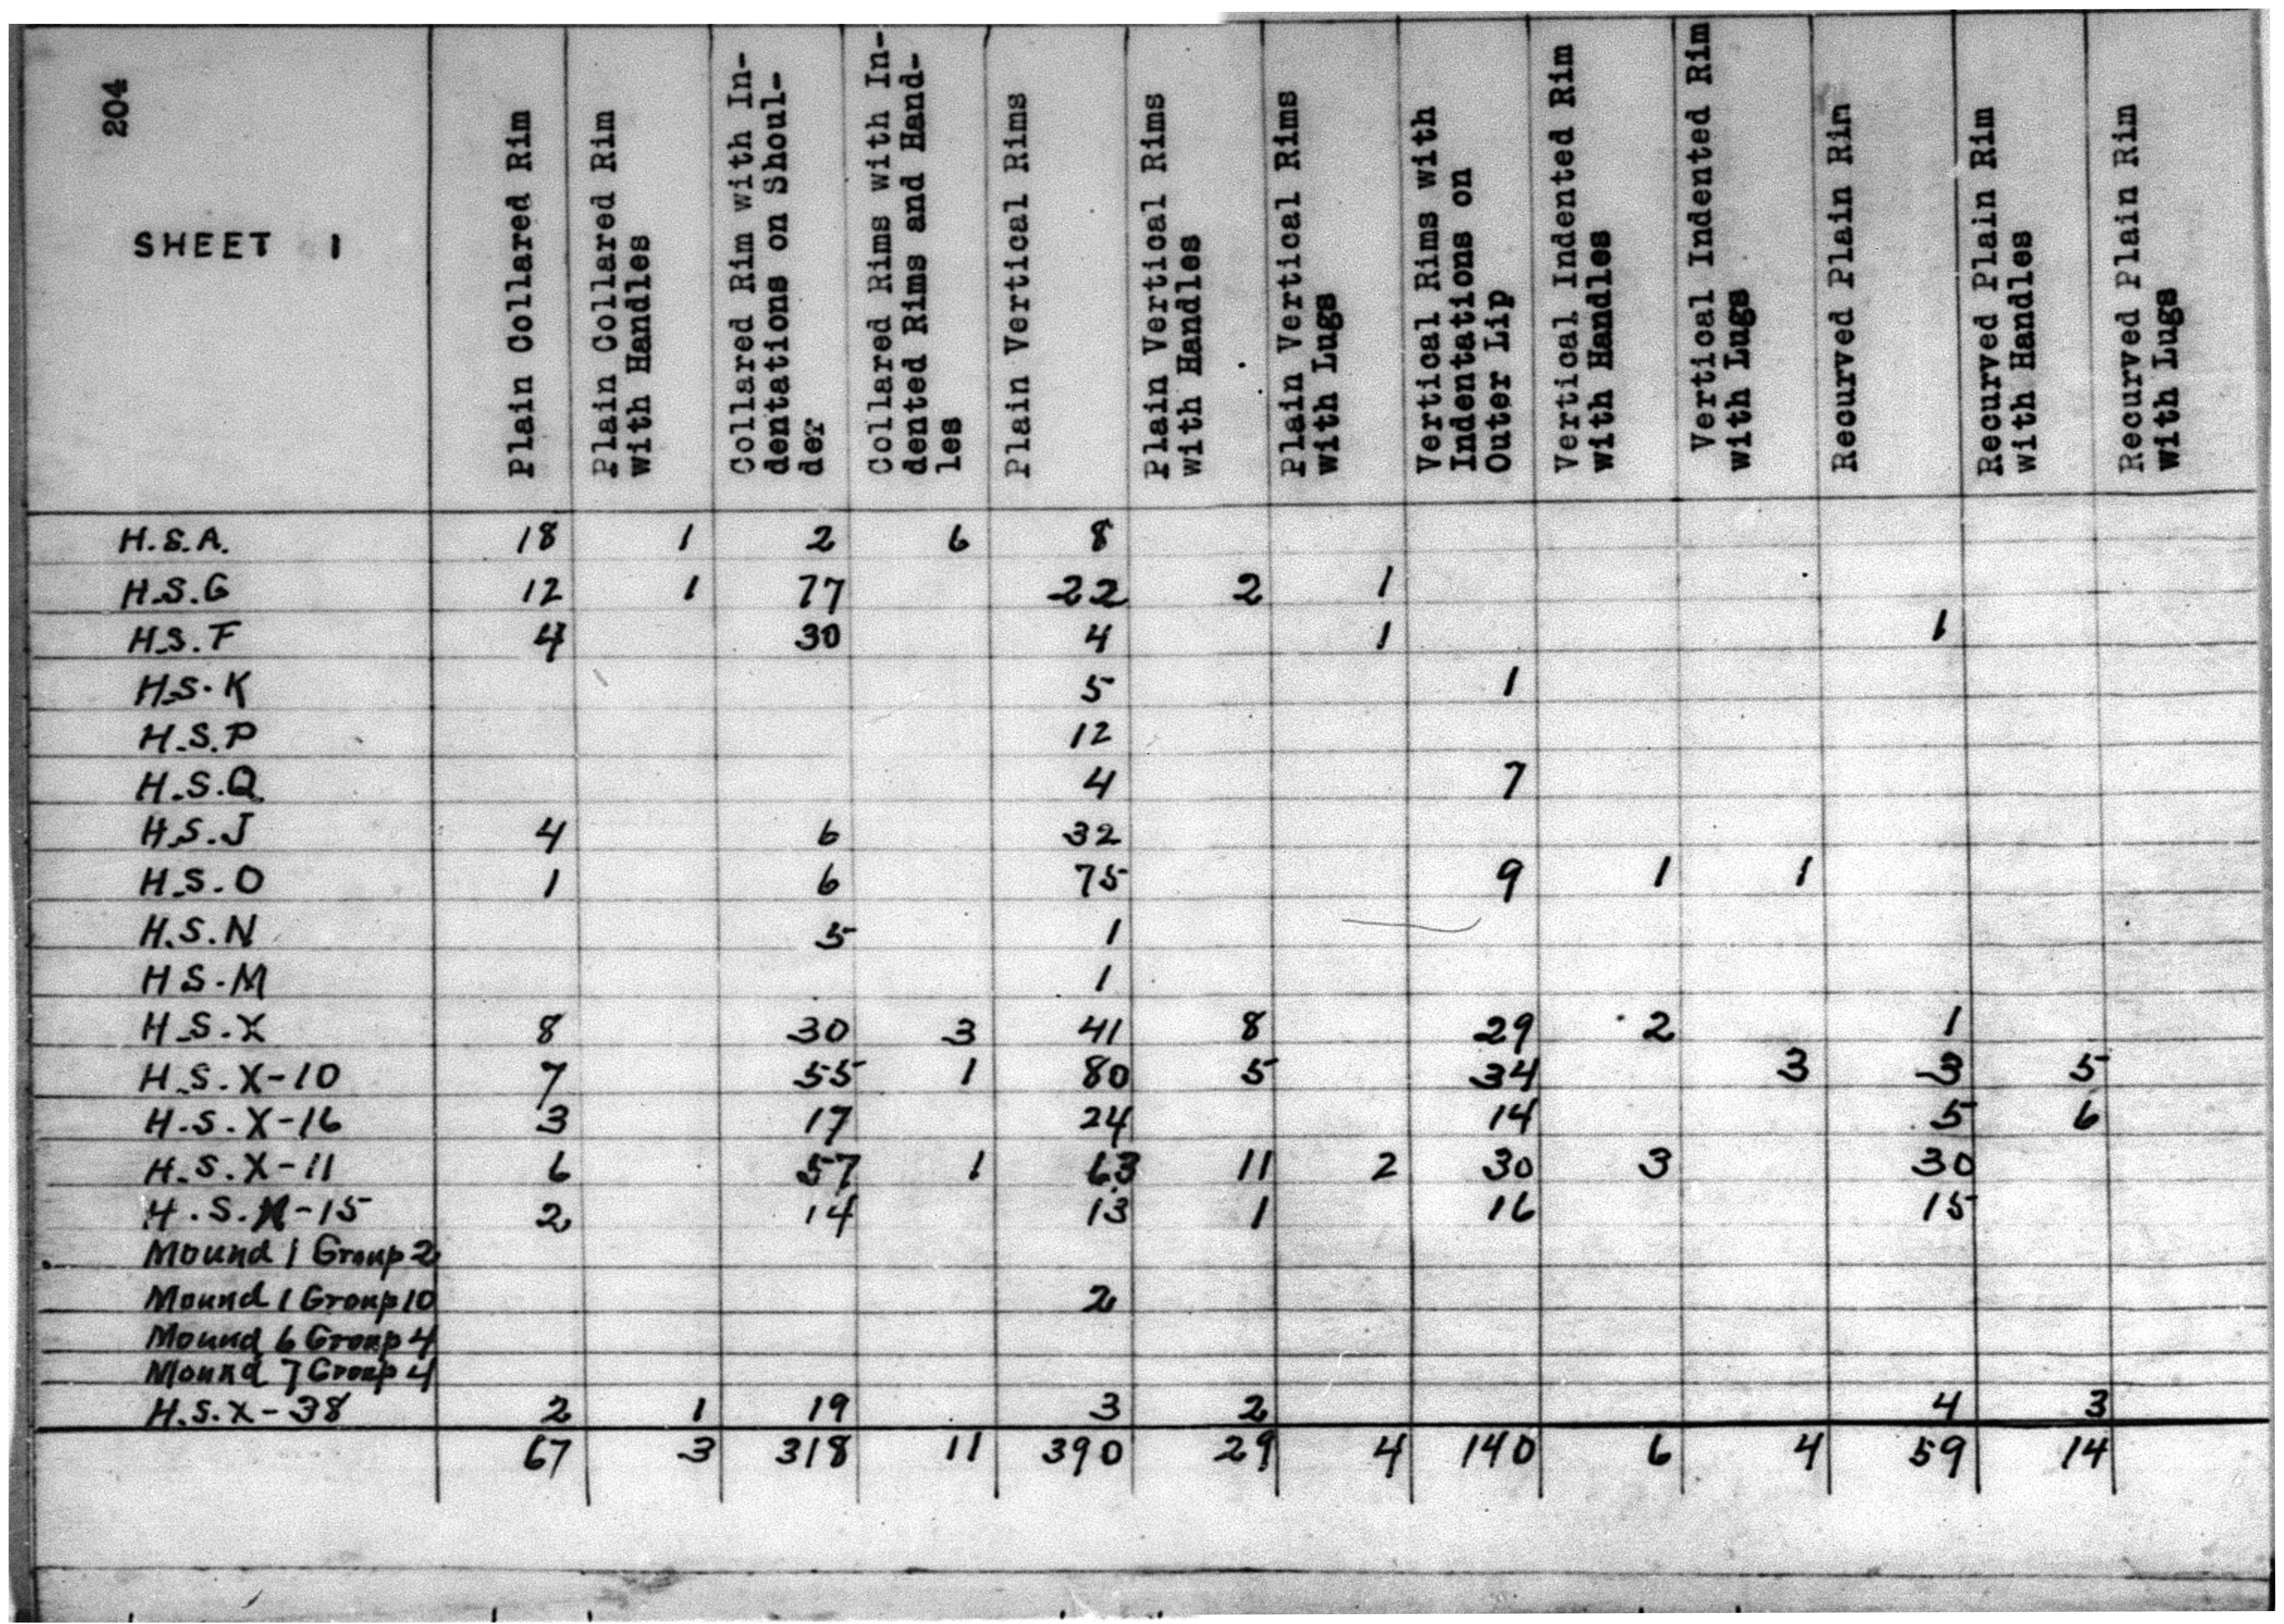 204
SHEET 1
Plain Collared Rim
Plain Collared Rim
with Handles
Collared Rim with In-
dentations on Shoul-
der
Collared Rims with In-
dented Rims and Hand-
les
Plain Vertical Rims
Plain Vertical Rims
with Handles
Plain Vertical Rims
with Lugs
Vertical Rims with
Indentations on
Outer Lip
Vertical Indented Rim
with Handles
Vertical Indented Rim
with Lugs
Recurved Plain Rim
Recurved Plain Rim
with Handles
Recurved Plain Rim
with Lugs
H.S.A. 18 1 2 6 8
H.S.G 12 1 77 22 2 1
H.S.F 4 30 4 1 1
H.S.K 5 1
H.S.P 12
H.S.Q 4 7
H.S.J 4 6 32
H.S.O 1 6 75 9 1 1
H.S.N 5 1
H S.M 1
H.S.X 8 30 3 41 8 29 2 1
H.S.X-10 7 55 1 80 5 34 3 3 5
H.S.X-16 3 17 24 14 5 6
H.S.X-11 6 57 1 63 11 2 30 3 30
H.S.X-15 2 14 13 1 16 15
Mound 1 Group 2
Mound 1 Group 10 2
Mound 6 Group 4
Mound 7 Group 4
H.S.X-38 2 1 19 3 2 4 3
67 3 318 11 390 29 4 140 6 4 59 14